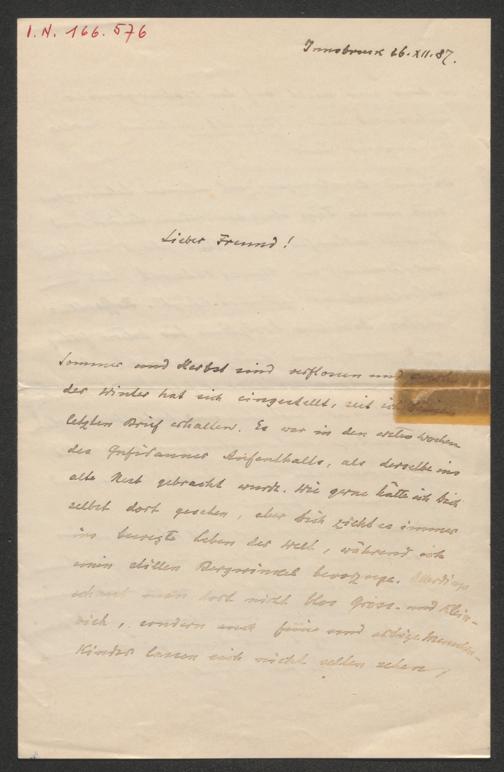 I.N. 166.576
Innsbruck 26.XII.87.
Lieber Freund!
Sommer und Herbst sind verflossen und
der Winter hat sich eingestellt, seit ich
letzten Brief erhalten. Es war in den ersten Wochen
des Gufidauner Aufenthalts, als derselbe ins
alte Nest gebracht wurde. Wie gerne hätte ich Dich
selbst dort gesehen, aber Dich zieht es immer
ins bewegte Leben der Welt, während ich
einen stillen Bergwinkel bevorzuge. Allerdings
schaut man dort nicht blos Gross- und Klein-
vieh, sondern auch feine und artige Menschen-
kinder lassen sich nicht selten sehen,